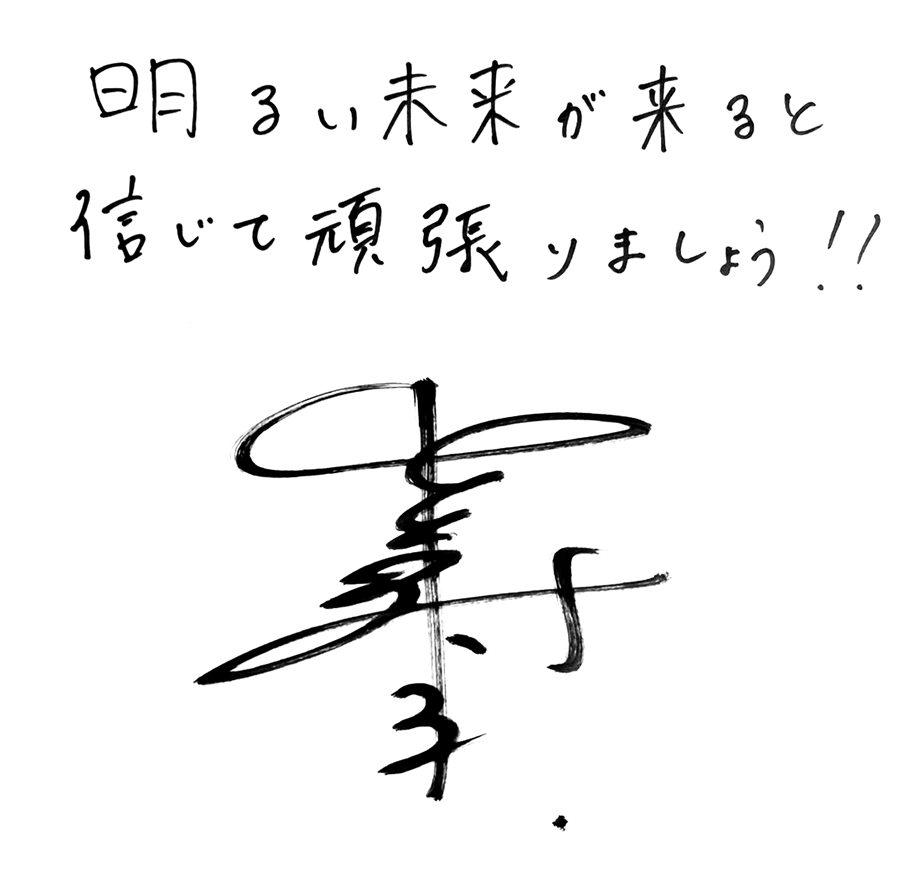 明るい未来が来ると
信じて頑張りましょう!!